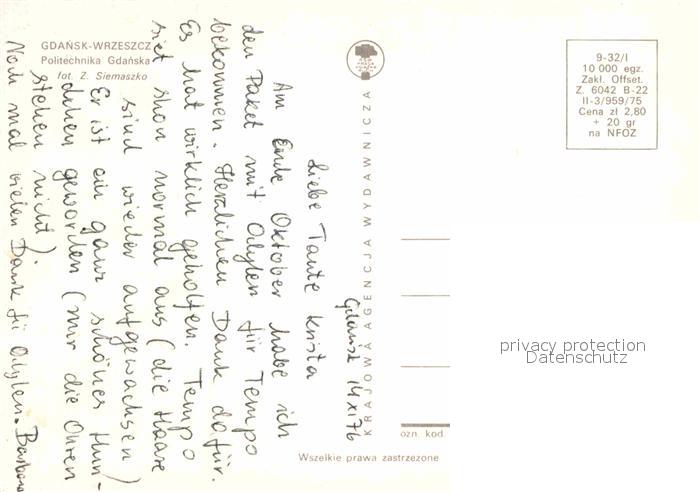 GDAŃSK-WRZESZCZ
Politechnika Gdańska
fot. Z. Siemaszko
KRAJOWA AGENCJA WYDAWNICZA
9-32/I
10 000 egz.
Zakł. Offset.
Z. 6042 B-22
II-3/959/75
Cena zł 2,80
+ 20 gr
na NFOZ
Gdańsk 14 XI 76
Liebe Tante Krista
Am Ende Oktober habe ich
den Paket mit Oilylen für Tempo
bekommen. Herzlichen Dank dafür.
Es hat wirklich geholfen. Tempo
siet shon normal aus (die Haare
sind wieder aufgewachsen)
Er ist ein ganz schönes Hun-
dchen geworden (nur die Ohren
stehen nicht).
Noch mal vielen Dank für Oilylen. Barbara
ozn. kod.
Wszelkie prawa zastrzeżone
privacy protection
Datenschutz